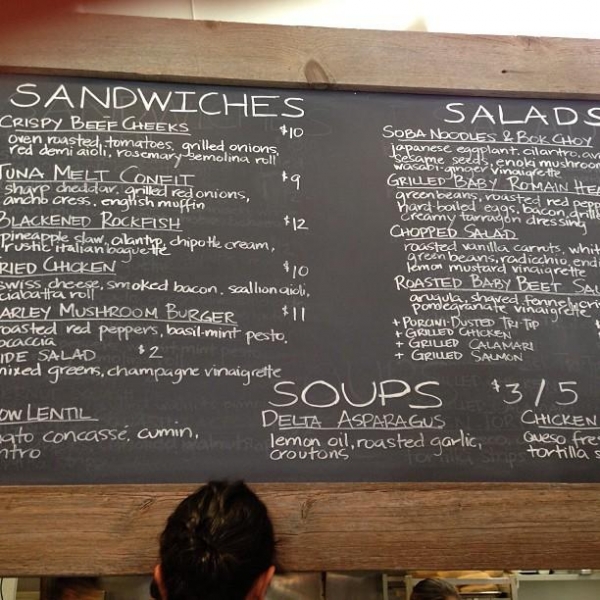 SANDWICHES
CRISPY BEEF CHEEKS $10
oven roasted tomatoes, grilled onions,
red demi aioli, rosemary semolina roll
TUNA MELT CONFIT $9
sharp cheddar, grilled red onions,
ancho cress, english muffin
BLACKENED ROCKFISH $12
pineapple slaw, cilantro, chipotle cream,
rustic italian baguette
RIED CHICKEN $10
swiss cheese, smoked bacon, scallion aioli,
ciabatta roll
ARLEY MUSHROOM BURGER $11
roasted red peppers, basil-mint pesto,
ocaccia
IDE SALAD $2
mixed greens, champagne vinaigrette
SALADS
SOBA NOODLES & BOK CHOY
japanese eggplant, cilantro, av
sesame seeds, enoki mushroom
wasabi-ginger vinaigrette
GRILLED BABY ROMAIN HEA
green beans, roasted red pepp
hard-boiled eggs, bacon, grille
creamy tarragon dressing
CHOPPED SALAD
roasted vanilla carrots, whit
green beans, radicchio, endi
lemon mustard vinaigrette
ROASTED BABY BEET SAL
arugula, shaved fennel, crisp
pomegranate vinaigrette
+ PORCINI-DUSTED TRI-TIP
+ GRILLED CHICKEN
+ GRILLED CALAMARI
+ GRILLED SALMON
SOUPS $3/5
OW LENTIL
ato concassé, cumin,
ntro
DELTA ASPARAGUS
lemon oil, roasted garlic,
croutons
CHICKEN
queso fres
tortilla s